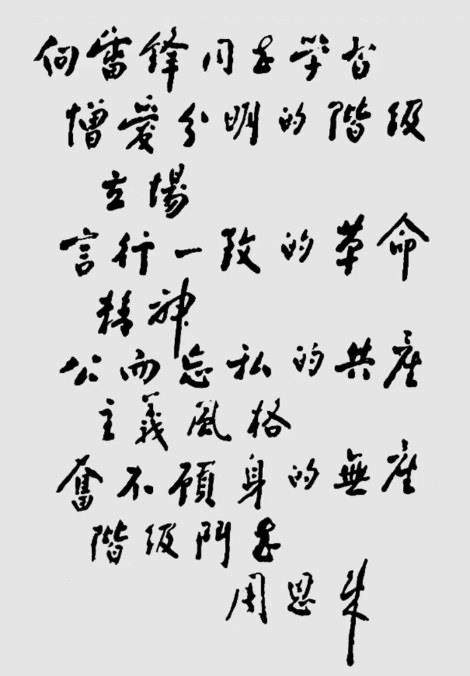 向雷锋同志学習
憎愛分明的階級
立場
言行一致的革命
精神
公而忘私的共産
主義風格
奮不顧身的無産
階級鬥志
周恩来